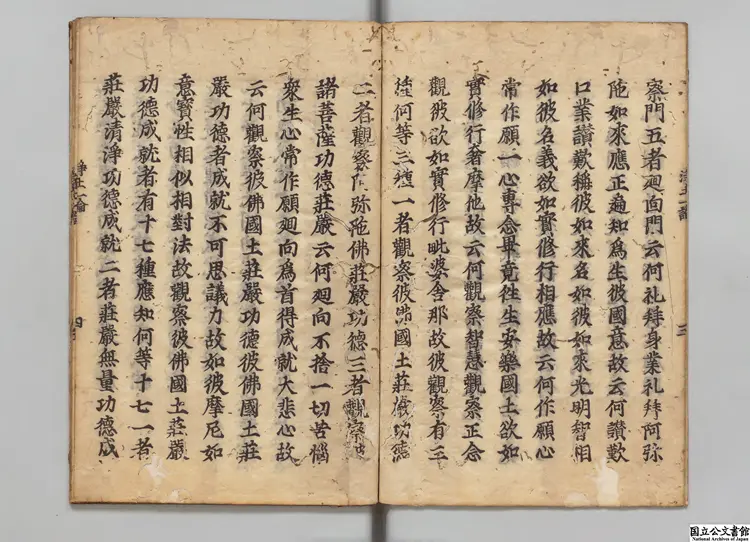 淨土論
三
察門五者迴向門云何礼拜身業礼拜阿弥
陁如來應正遍知爲生彼國意故云何讃歎
口業讃歎稱彼如來名如彼如來光明智相
如彼名義欲如實修行相應故云何作願心
常作願一心專念畢竟徃生安樂國土欲如
實修行奢摩他故云何觀察智慧觀察正念
觀彼欲如實修行毗婆舍那故彼觀察有三
種何等三種一者觀察彼佛國土莊嚴功德
二者觀察阿弥陁佛莊嚴功德三者觀察
諸菩薩功德莊嚴云何廻向不捨一切苦惱
衆生心常作願廻向爲首得成就大悲心故
云何觀察彼佛國土莊嚴功德彼佛國土莊
嚴功德者成就不可思議力故如彼摩尼如
意寶性相似相對法故觀察彼佛國土莊嚴
功德成就者有十七種應知何等十七一者
莊嚴清淨功德成就二者莊嚴無量功德成
淨土論
四
国立公文書館
National Archives of Japan